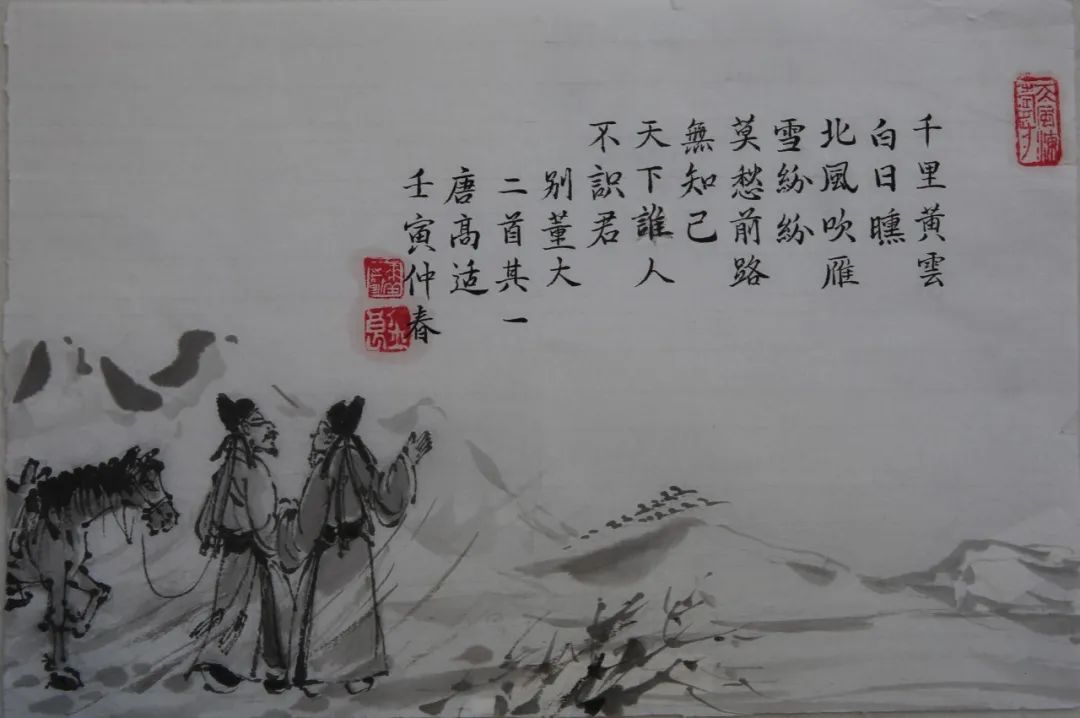 千里黃雲
白日曛
北風吹雁
雪紛紛
莫愁前路
無知己
天下誰人
不識君
別董大
二首其一
唐高适
壬寅仲春